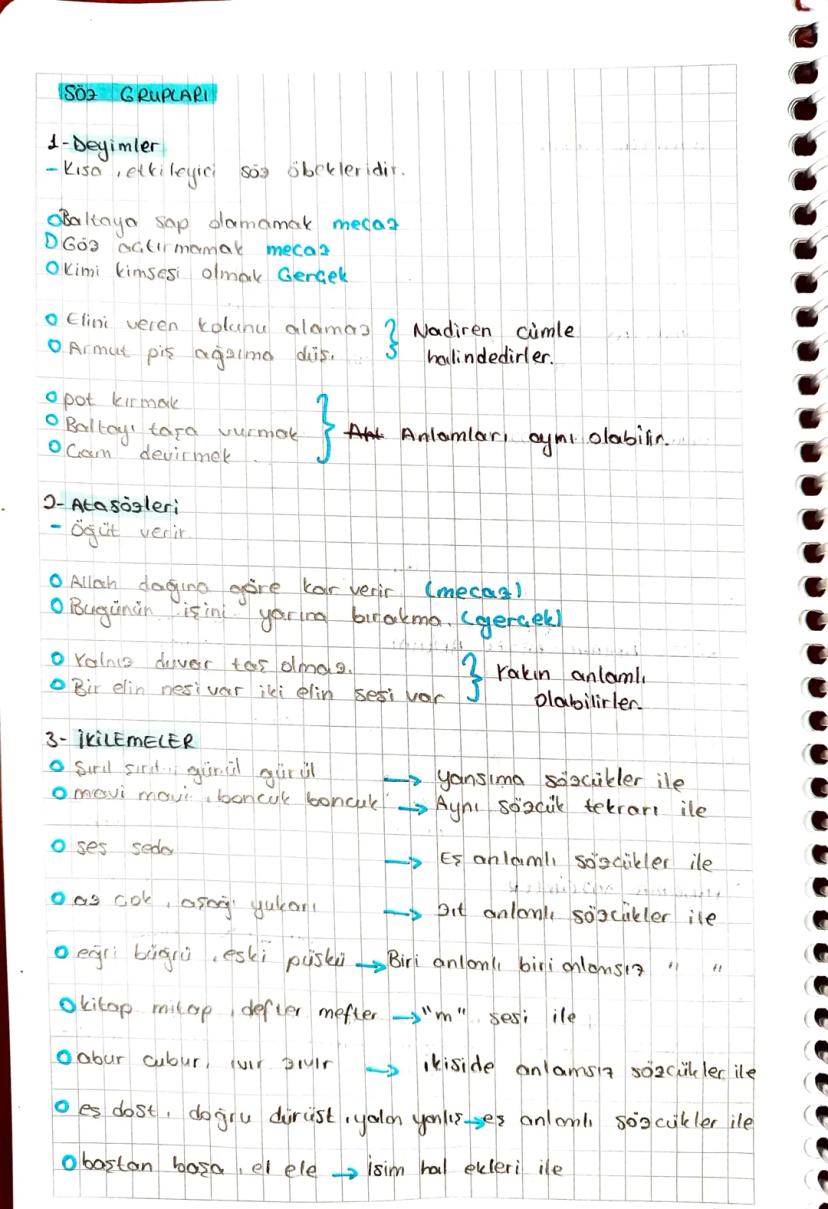 SÖZ GRUPLARI
1-Deyimler
- Kısa, etkileyici söz öbekleridir.
Baltaya sap olamamak mecaz
Göz actırmamak mecaz
Kimi kimsesi olmak Gerçek
Elini veren kolunu alamaz } Nadiren cümle
Armut piş ağzıma düş. halindedirler.
pot kırmak
Baltayı taşa vurmak } Anlamları aynı olabilir.
Cam devirmek
2- Atasözleri
- öğüt verir
Allah dağına göre kar verir (mecaz)
Bugünün işini yarına bırakma. (gerçek)
Yalnız duvar taş olmaz. } Yakın anlamlı
Bir elin nesi var iki elin sesi var olabilirler.
3- İKİLEMELER
Şırıl şırıl, gürül gürül → yansıma sözcükler ile
mavi mavi, boncuk boncuk → Aynı sözcük tekrarı ile
ses seda → Eş anlamlı sözcükler ile
az çok, aşağı yukarı → Zıt anlamlı sözcükler ile
eğri büğrü, eski püskü → Biri anlamlı biri anlamsız " "
kitap mitap, defter mefter → "m" sesi ile
abur cubur, ıvır zıvır → ikiside anlamsız sözcükler ile
eş dost, doğru dürüst, yalan yanlış → eş anlamlı sözcükler ile
baştan başa, el ele → İsim hal ekleri ile